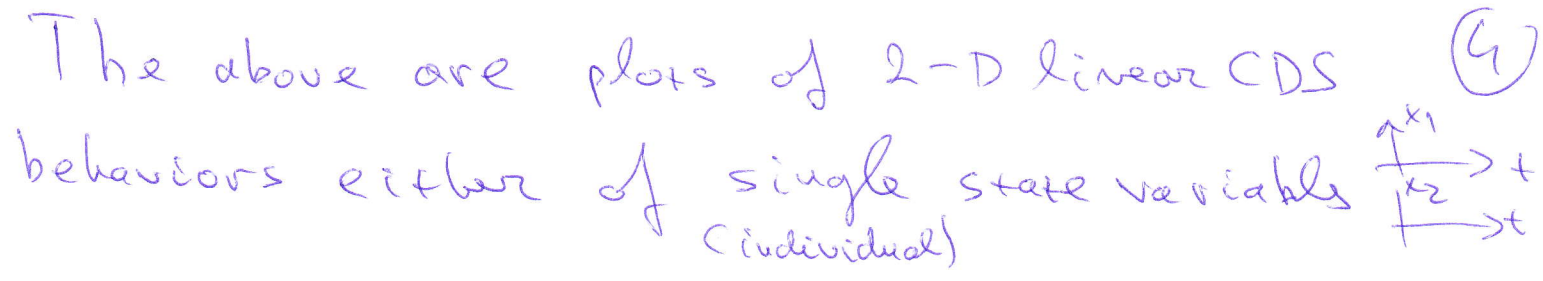 The above are plots of 2-D linear CDS 4
behaviors either of single state variables x1 t
x2 t
(individual)